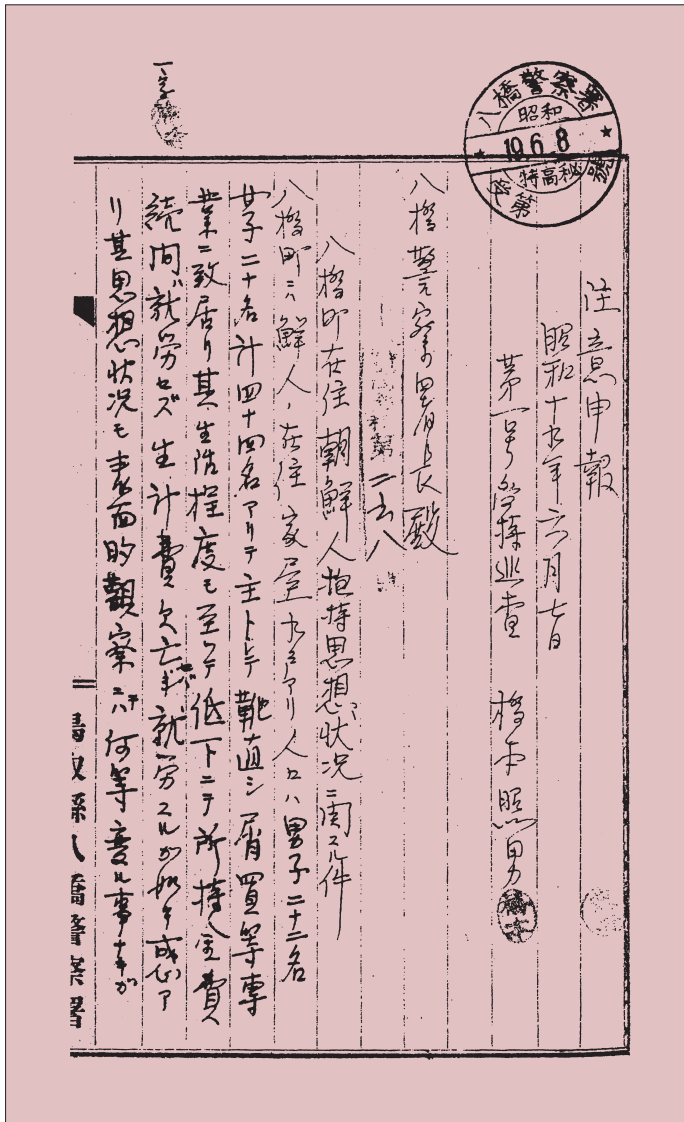 八橋警察署
昭和
19.6.8
特高秘
受第 號
注意申報
昭和十九年六月七日
第一号管掾巡査 橋本照男
八橋警察署長殿
二六八
八橋町在住朝鮮人抱持思想状況ニ関スル件
八橋町ニハ鮮人ノ在住家屋 アリ人口ハ男子二十二名
女子二十名計四十四名アリテ主トシテ靴直シ屑買等専
業ニ致居リ其生活程度モ至ツテ低下ニテ所持金費
続間ハ就労セズ生計費欠亡 就労スルカ如キ 成
リ其思想状況モ表面的観察ニテハ何等変ル事ナキガ
一字
鳥取縣八橋警察署